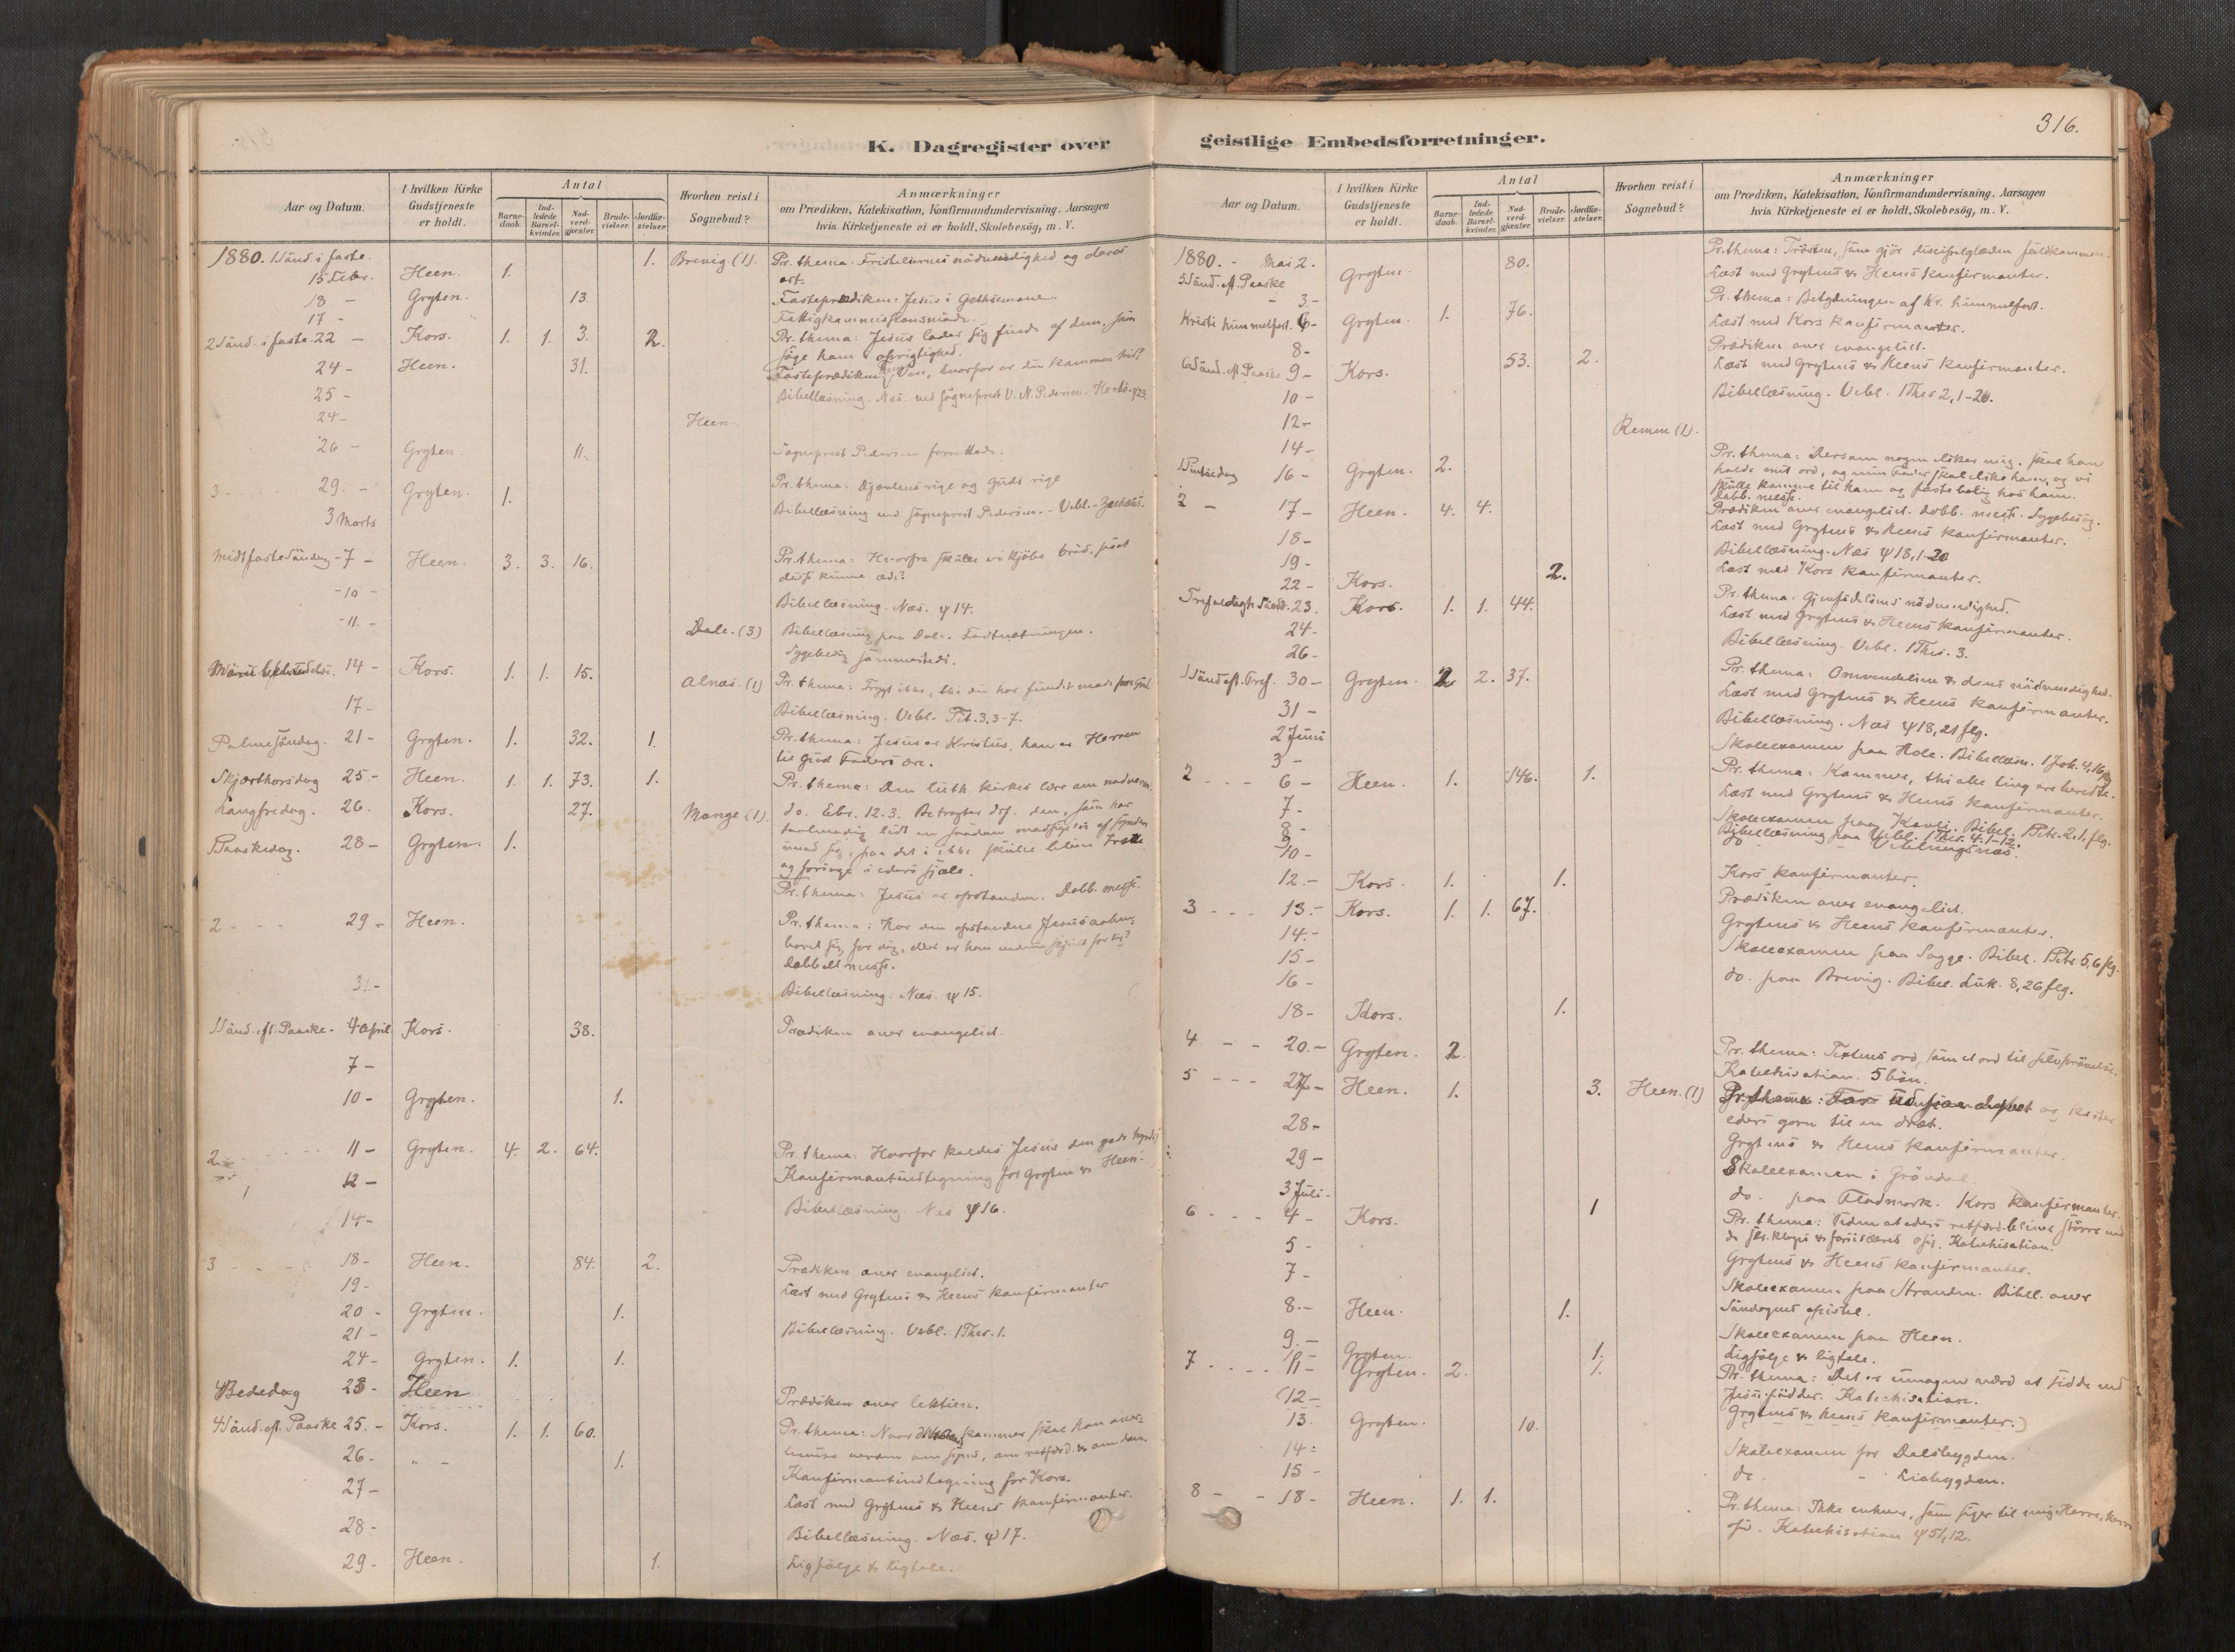 316.
K. Dagregister over
Aar og Datum.
I hvilken Kirke Gudstjeneste er holdt.
Antal
Barne-daab.
Ind-ledede Barsel-kvinder.
Nad-verd-gjæster.
Brude-vielser.
Jordfæ-stelser.
Hvorhen reist i Sognebud?
Anmærkninger
om Prædiken, Katekisation, Konfirmandundervisning, Aarsagen
hvis Kirketjeneste ei er holdt, Skolebesög, m. V.
1880. 1 Sönd. i faste. 15 Febr. Heen. 1. 1. Brevig (1). Pr. thema: Fristelsernes nödvendighed og deres
art.
18 - Gryten. 13. Fasteprædiken: Jesus i Gethsemane.
17 - Fattigkommissionsmöde.
2 Sönd. i faste. 22 - Kors. 1. 1. 3. 2. Pr. thema: Jesus lader sig finde af dem, som
söge ham i oprigtighed.
24 - Heen. 31. Fasteprædiken: Ven, hvorfor er du kommen hid?
25 - Bibellæsning. Næs. ved sogneprest V. N. Pedersen.
24 - Heen.
26 - Gryten. 11. Sogneprest Pedersen forrettede.
3 - - 29. - Gryten. 1. Pr. thema: Djævlens rige og Guds rige
3 Marts Bibellæsning med sogneprest Pedersen. - Vebl. - Zachæus.
Midtfaste Söndag - 7 - Heen. 3. 3. 16. Pr. thema: Hvorfra skulle vi kjöbe bröd, saa at
disse kunne æde?
- 10 - Bibellæsning. Næs. ψ 14.
- 11. - Dale. (3) Bibellæsning paa Dale. Fadtsætningen.
Sygebesög sammesteds.
Mariæ bebudelse. 14 - Kors. 1. 1. 15. Alnæs. (1) Pr. thema: Frygt ikke, thi du har fundet naade for Gud
17 - Bibellæsning. Vebl. Tit. 3, 3-7.
Palmesöndag. 21 - Gryten. 1. 32. 1. Pr. thema: Jesus er Kristus, han er Herren
til Gud Faders ære.
Skjærthorsdag 25. - Heen. 1. 1. 73. 1. Pr. thema: Den luth. kirkes lære om nadveren.
Langfredag. 26. Kors. 27. Mange (1). do. Ebr. 12.3. Betragter dog den, som har
taalmodig lidt en saadan modsigelse af syndere
imod sig, paa det i ikke skulle blive trætte
og forsage i eders sjæle.
1 Paaskedag. 28 - Gryten. 1. Pr. thema: Jesus er opstanden. Dobb. messe.
2 - - - 29 - Heen. Pr. thema: Har den opstandne Jesus aaben-
baret sig for dig, eller er han endnu skjult for dig?
Dobbelt messe.
31. - Bibellæsning. Næs. ψ 15.
1 Sönd. eft. Paaske - 4 April Kors. 38. Prædiken over evangeliet.
7 -
10 - Gryten. 1.
2 - - - 11 - Gryten. 4. 2. 64. Pr. thema: Hvorfor kaldes Jesus den gode hyrde?
12 - Konfirmantindtegning for Gryten & Heen.
14 - Bibellæsning. Næs ψ 16.
3 - - - 18 - Heen. 84. 2. Prædiken over evangeliet.
19 - Læst med Grytens & Heens konfirmanter
20 - Gryten. 1.
21 - Bibellæsning. Vebl. 1 Thes. 1.
24 - Gryten. 1. 1.
4 Bededag 23 - Heen Prædiken over lektien.
4 Sönd. eft. Paaske 25. - Kors. 1. 1. 60. Pr. thema: Naar kommer skal han over-
bevise verden om synd, om retfærd. & om dom.
26 - " - 1. Konfirmantindtegning for Kors.
27 - Læst med Grytens & Heens konfirmanter.
28 - Bibellæsning. Næs. ψ 17.
29 - Heen. 1. Ligfölge & ligtale.
geistlige Embedsforretninger.
Aar og Datum.
I hvilken Kirke Gudstjeneste er holdt.
Antal
Barne-daab.
Ind-ledede Barsel-kvinder.
Nad-verd-gjæster.
Brude-vielser.
Jordfæ-stelser.
Hvorhen reist i Sognebud?
Anmærkninger
om Prædiken, Katekisation, Konfirmandundervisning, Aarsagen
hvis Kirketjeneste ei er holdt, Skolebesög, m. V.
1880. - Mai 2. 5 Sönd. eft. Paaske Gryten. 80. Pr. thema: Trösten, som gjör discipelglæden fuldkommen.
- 3. - Læst med Grytens & Heens konfirmanter.
Kristi himmelfart. 6 - Gryten. 1. 76. Pr. thema: Betydningen af Kr. himmelfart.
8 - Læst med Kors konfirmanter.
6 Sönd. eft. Paaske 9 - Kors. 53. 2. Prædiken over evangeliet.
10 - Læst med Grytens & Heens konfirmanter.
12 - Bibellæsning. Vebl. 1 Thes 2, 1-20.
14 - Remen (1).
1 Pintsedag 16 - Gryten. 2. Pr. thema: Dersom nogen elsker mig, skal han
holde mit ord, og min Fader skal elske ham, og vi
skulle komme til ham og fæste bolig hos ham.
Dobb. messe.
2 - 17 - Heen. 4. 4. Prædiken over evangeliet. Dobb. messe. Sygebesög.
18 - Læst med Grytens & Heens konfirmanter.
19 - Bibellæsning. Næs ψ 18, 1-20
22 - Kors. 2. Læst med Kors konfirmanter.
Trefoldigh. Sönd. 23. Kors. 1. 1. 44. Pr. thema: Gjenfödelsens nödvendighed.
24 - Læst med Grytens & Heens konfirmanter.
26 - Bibellæsning. Vebl. 1 Thes. 3.
1 Sönd. eft. Tref. 30 - Gryten. 2 2. 37. Pr. thema: Omvendelsen & dens nödvendighed.
31 - Læst med Grytens & Heens konfirmanter.
2 Juni Bibellæsning. Næs ψ 18, 21 flg.
3 - Skoleexamen paa Hole. Bibellæsn. 1 Joh. 4, 16 flg
2 - - - 6 - Heen. 1. 146. 1. Pr. thema: Kommer, thi alle ting ere beredte.
7 - Læst med Grytens & Heens konfirmanter.
8 - Skoleexamen paa Kavli. Bibel. 1 Petr. 2, 1. flg.
9 Bibellæsning paa Vebl. 1 Thes. 4. 1-12.
10 - do - Veblungsnæs.
12. - Kors. 1. 1. Kors konfirmanter.
3 - - - 13. - Kors. 1. 1. 67. Prædiken over evangeliet.
14. - Grytens & Heens konfirmanter.
15 - Skoleexamen paa Sogge. Bibel. 1 Petr. 5, 6 flg.
16 - do. paa Brevig. Bibel. Luk. 8, 26 flg.
18 - Kors. 1.
4 - - 20. - Gryten. 2 Pr. thema: Textens ord, som et ord til selvprövelse.
Katekisation. 5 bön.
5 - - - 27 - Heen. 1. 3. Heen. (1) Pr. thema: Far ud paa dybet og kaster
eders garn til en dræt.
28 - Grytens & Heens konfirmanter.
29 - Skoleexamen i Gröndal.
3 Juli. do. paa Fladmark. Kors konfirmanter.
6 - - - 4 - Kors. 1 Pr. thema: Uden at eders retfærd. bliver större end
de skr. kloges & farisæeres osv. Katekisation.
5 - Grytens & Heens konfirmanter.
7 - Skoleexamen paa Stranden. Bibell. over
Söndagens epistel.
8. - Heen. 1.
9. - Gryten. 1. Skoleexamen paa Heen.
Ligfölge & ligtale.
7 - - - 11 - Gryten. 2. 1. Pr. thema: Det er umagen værd at sidde ved
Jesu födder. Katechisation.
(12 - Grytens & Heens konfirmanter.)
13. Gryten. 10.
14 - Skoleexamen for Dalsbygden.
15 - do. - Liabygden.
8 - - 18 - Heen. 1. 1. Pr. thema: Ikke enhver, som siger til mig Herre, herre
osv. Katekisation ψ 51, 12.